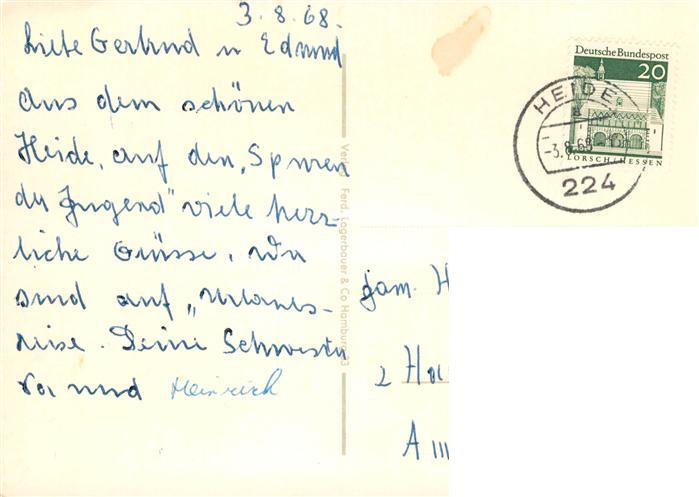 3.8.68.
Liebe Gertrud u Edmund
aus dem schönen
Heide, auf den „Spuren
der Jugend" viele herz-
liche Grüsse. Wir
sind auf „Urlaubs-
reise. Deine Schwester
und Heinrich
Verlag Ferd. Lagerbauer & Co Hamburg 23
Deutsche Bundespost
20
LORSCH/HESSEN
HEIDE
a
-3.8.68
224
Fam. H
2 H
A III